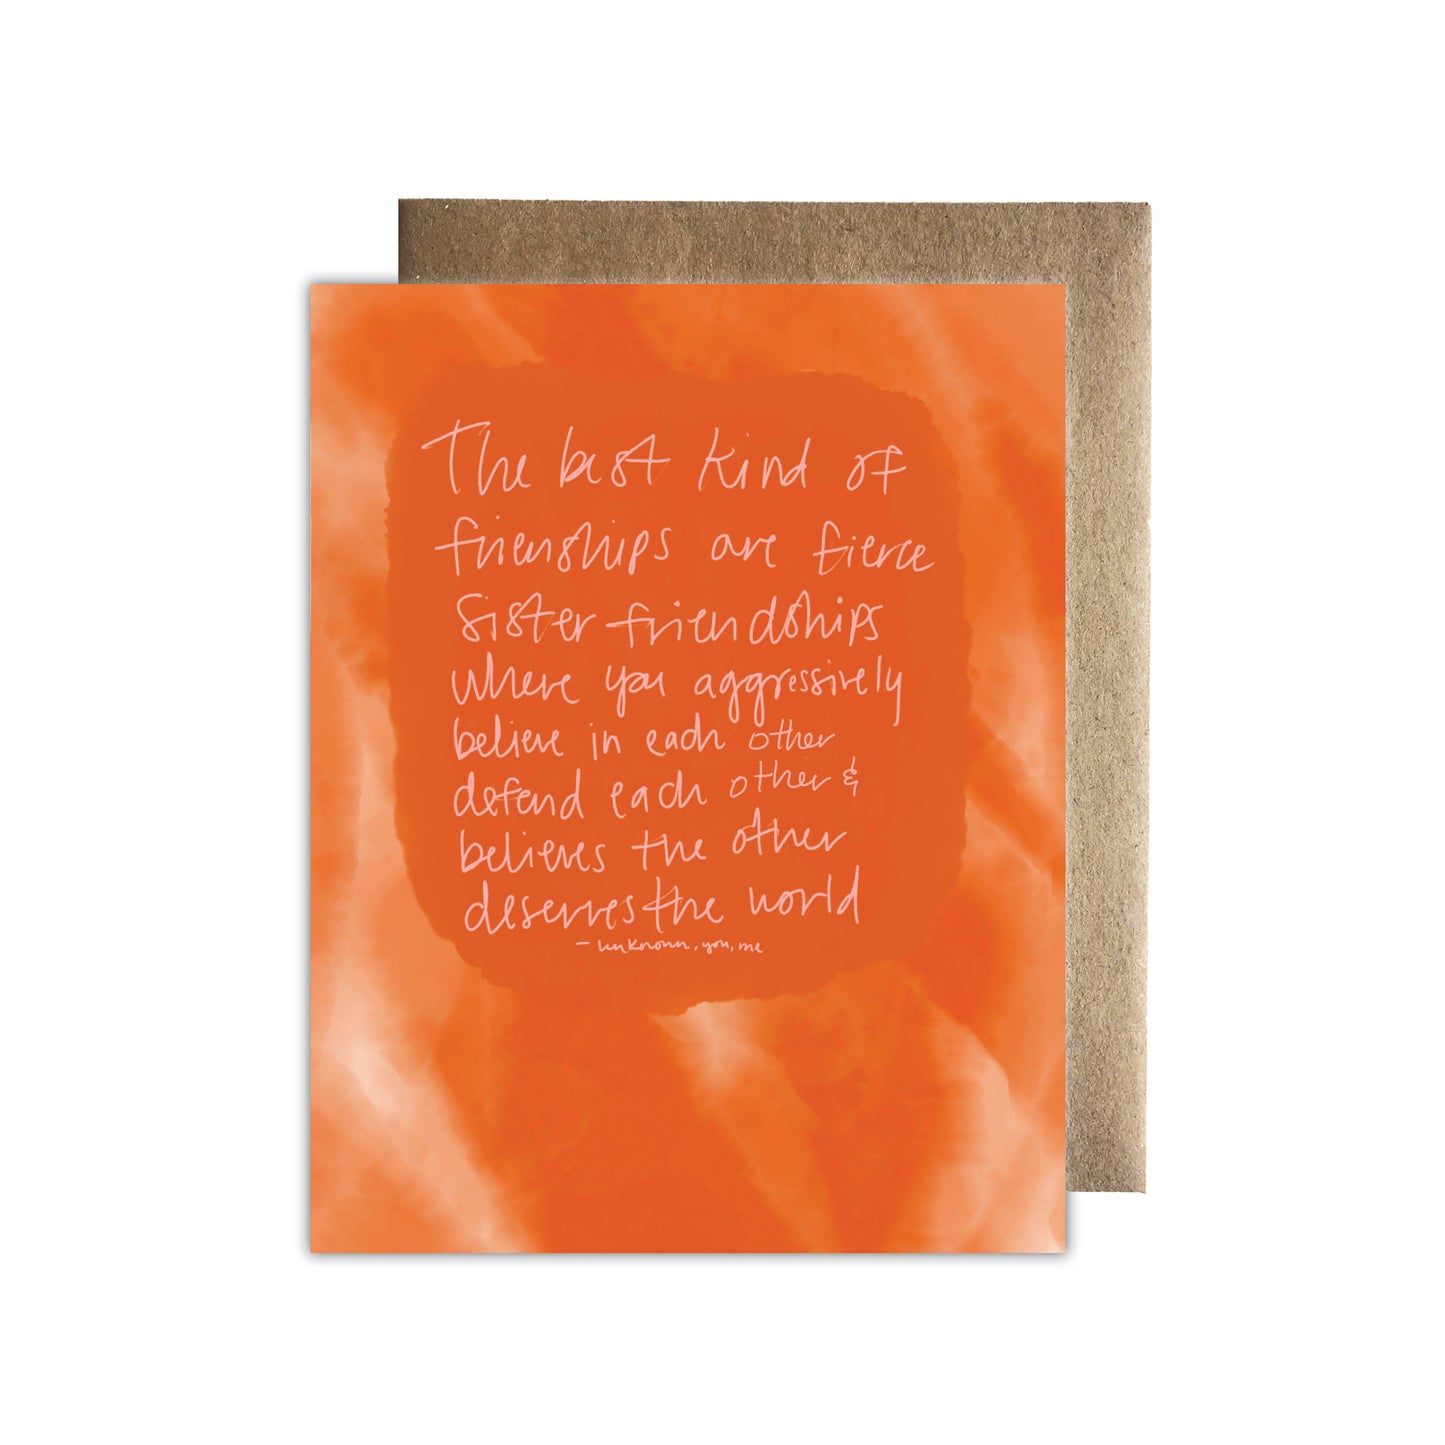 The best kind of
frienships are fierce
sister friendships
where you aggressively
believe in each other
defend each other &
believes the other
deserves the world
- unknown, you, me